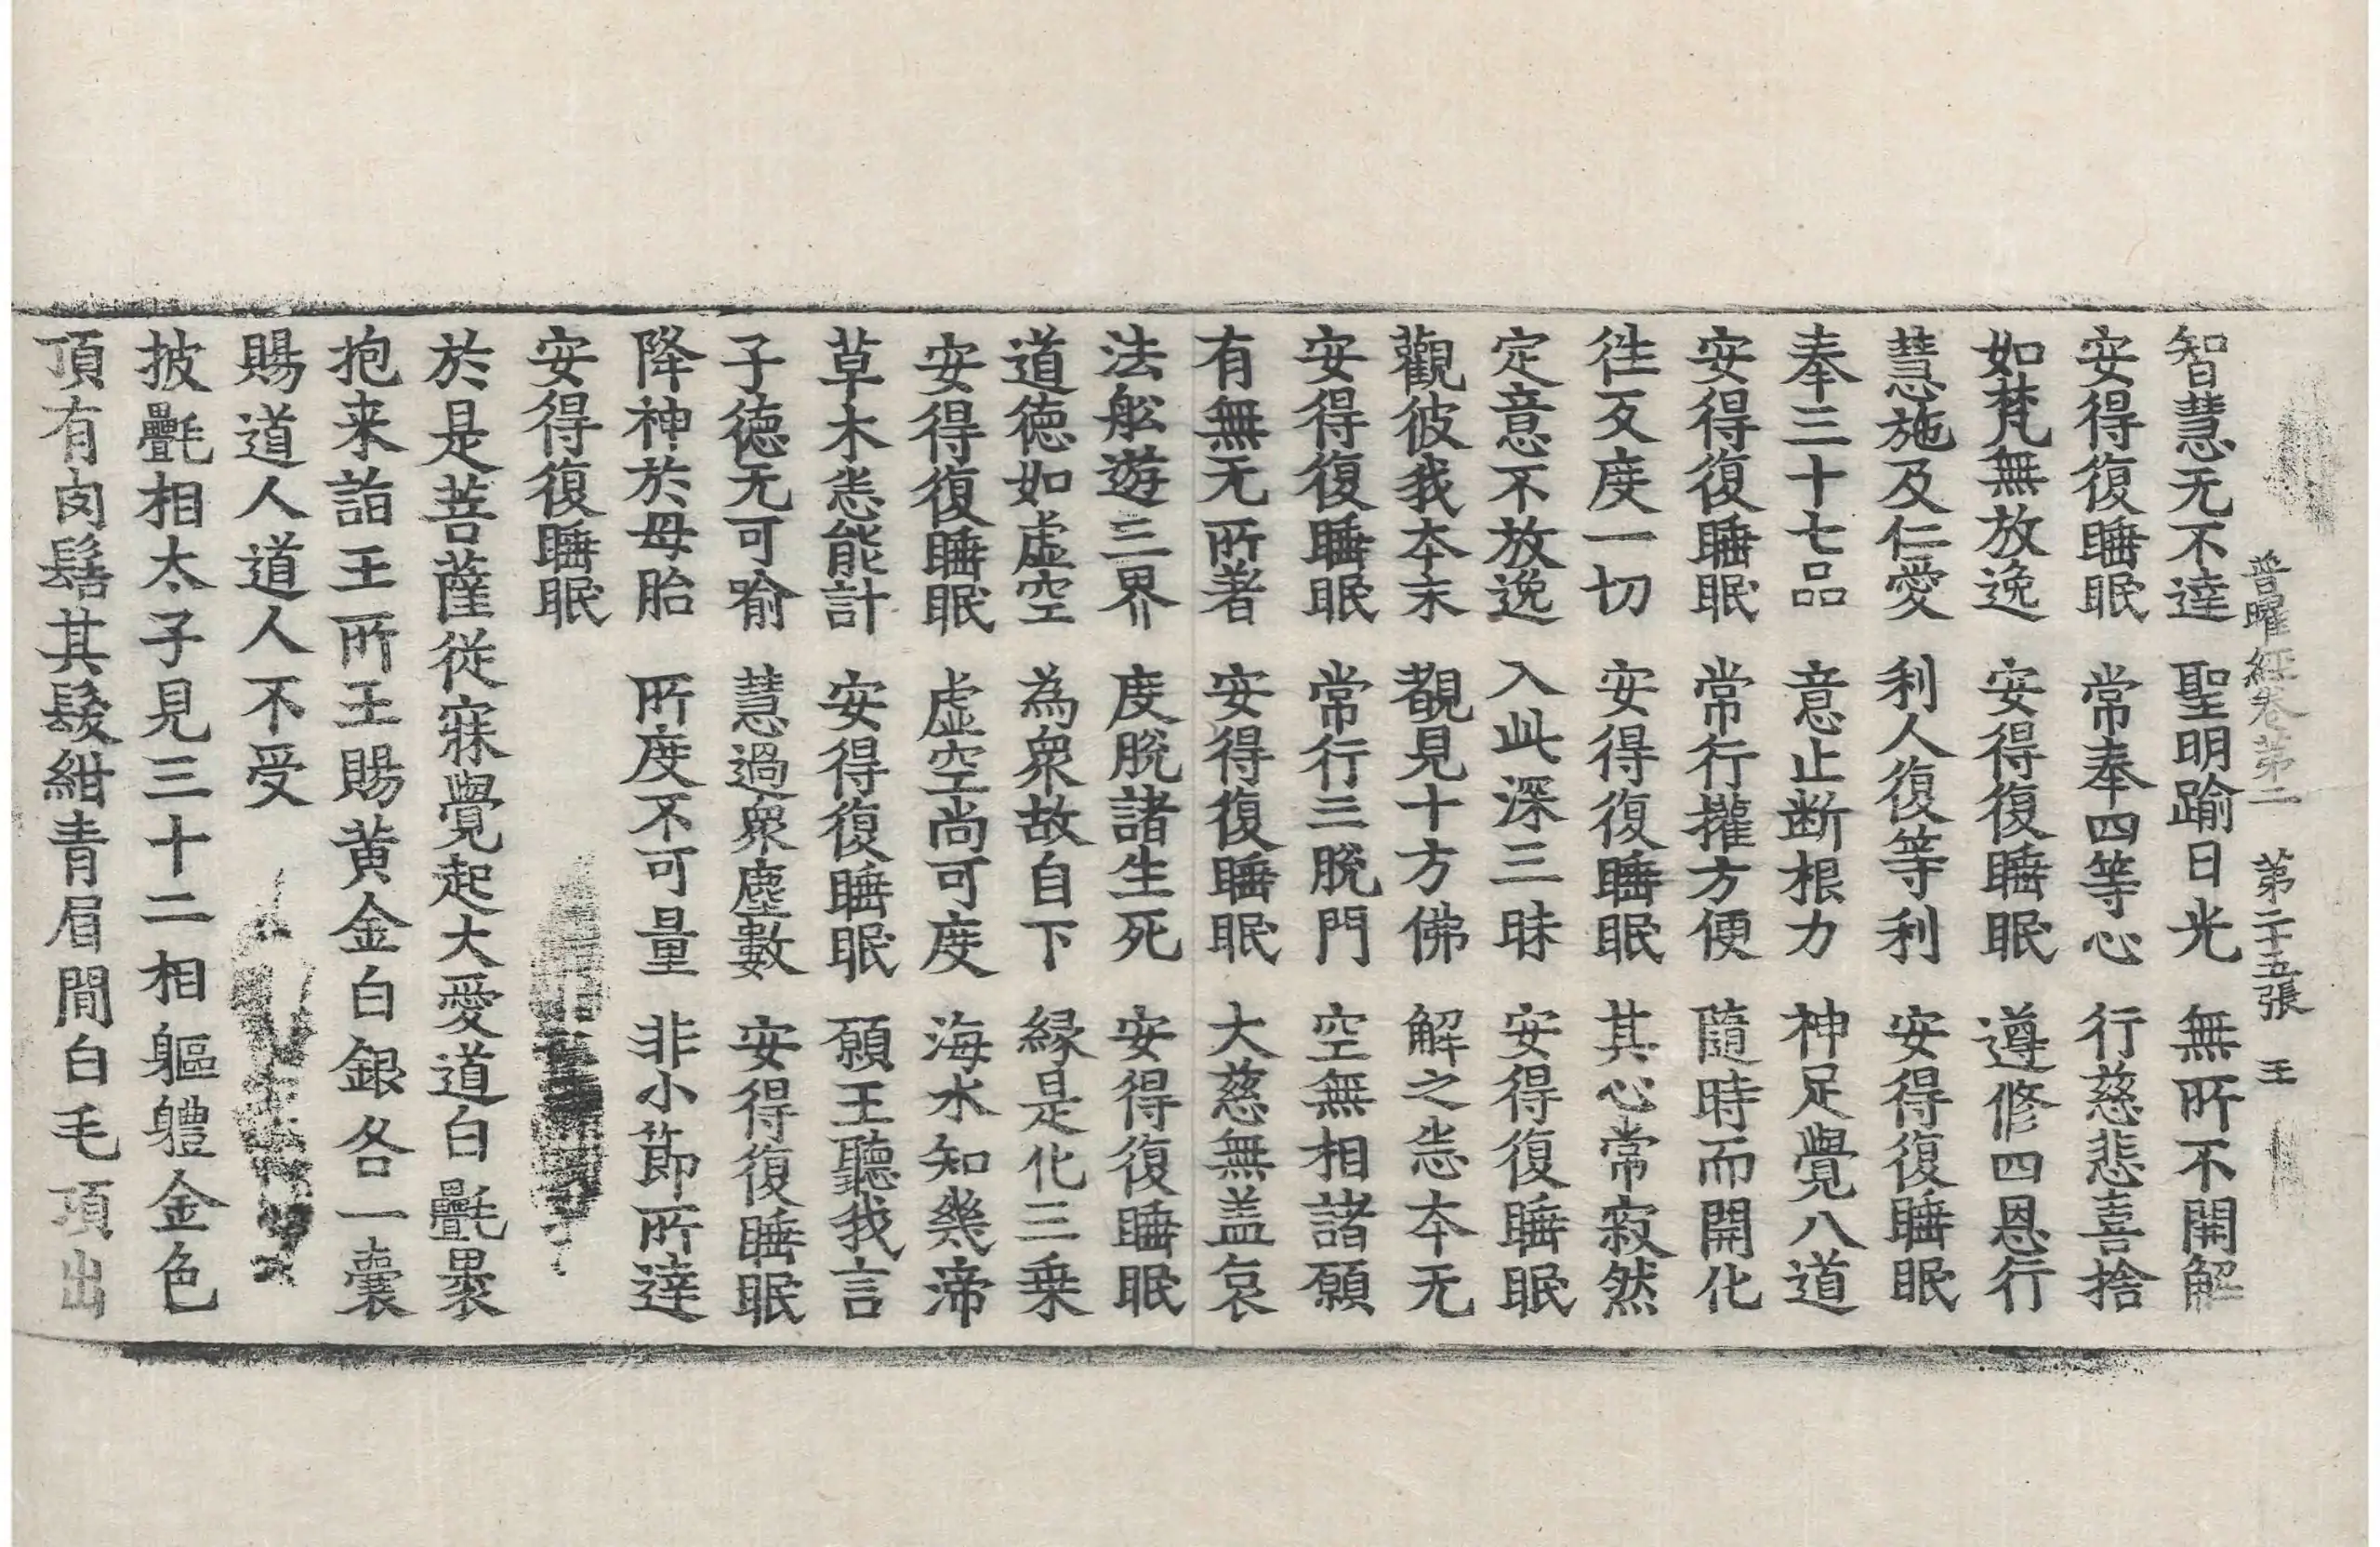 普曜經卷第二　第二十五張　王
智慧无不達　聖明踰日光　無所不開解
安得復睡眠　常奉四等心　行慈悲喜捨
如梵無放逸　安得復睡眠　遵修四恩行
慧施及仁愛　利人復等利　安得復睡眠
奉三十七品　意止断根力　神足覺八道
安得復睡眠　常行權方便　隨時而開化
徃反度一切　安得復睡眠　其心常寂然
定意不放逸　入此深三昧　安得復睡眠
觀彼我夲末　覩見十方佛　解之悉夲无
安得復睡眠　常行三脫門　空無相諸願
有無无所著　安得復睡眠　大慈無盖哀
法舩遊三界　度脫諸生死　安得復睡眠
道德如虛空　為衆故自下　縁是化三乗
安得復睡眠　虛空尚可度　海水知幾渧
草木悉能計　安得復睡眠　願王聽我言
子德无可喻　慧過衆塵數　安得復睡眠
降神於母胎　所度不可量　非小節所達
安得復睡眠
於是菩薩從寐覺起大愛道白㲲裹
抱来詣王所王賜黄金白銀各一囊
賜道人道人不受
披㲲相太子見三十二相軀軆金色
頂有肉髻其髮紺青眉間白毛項出